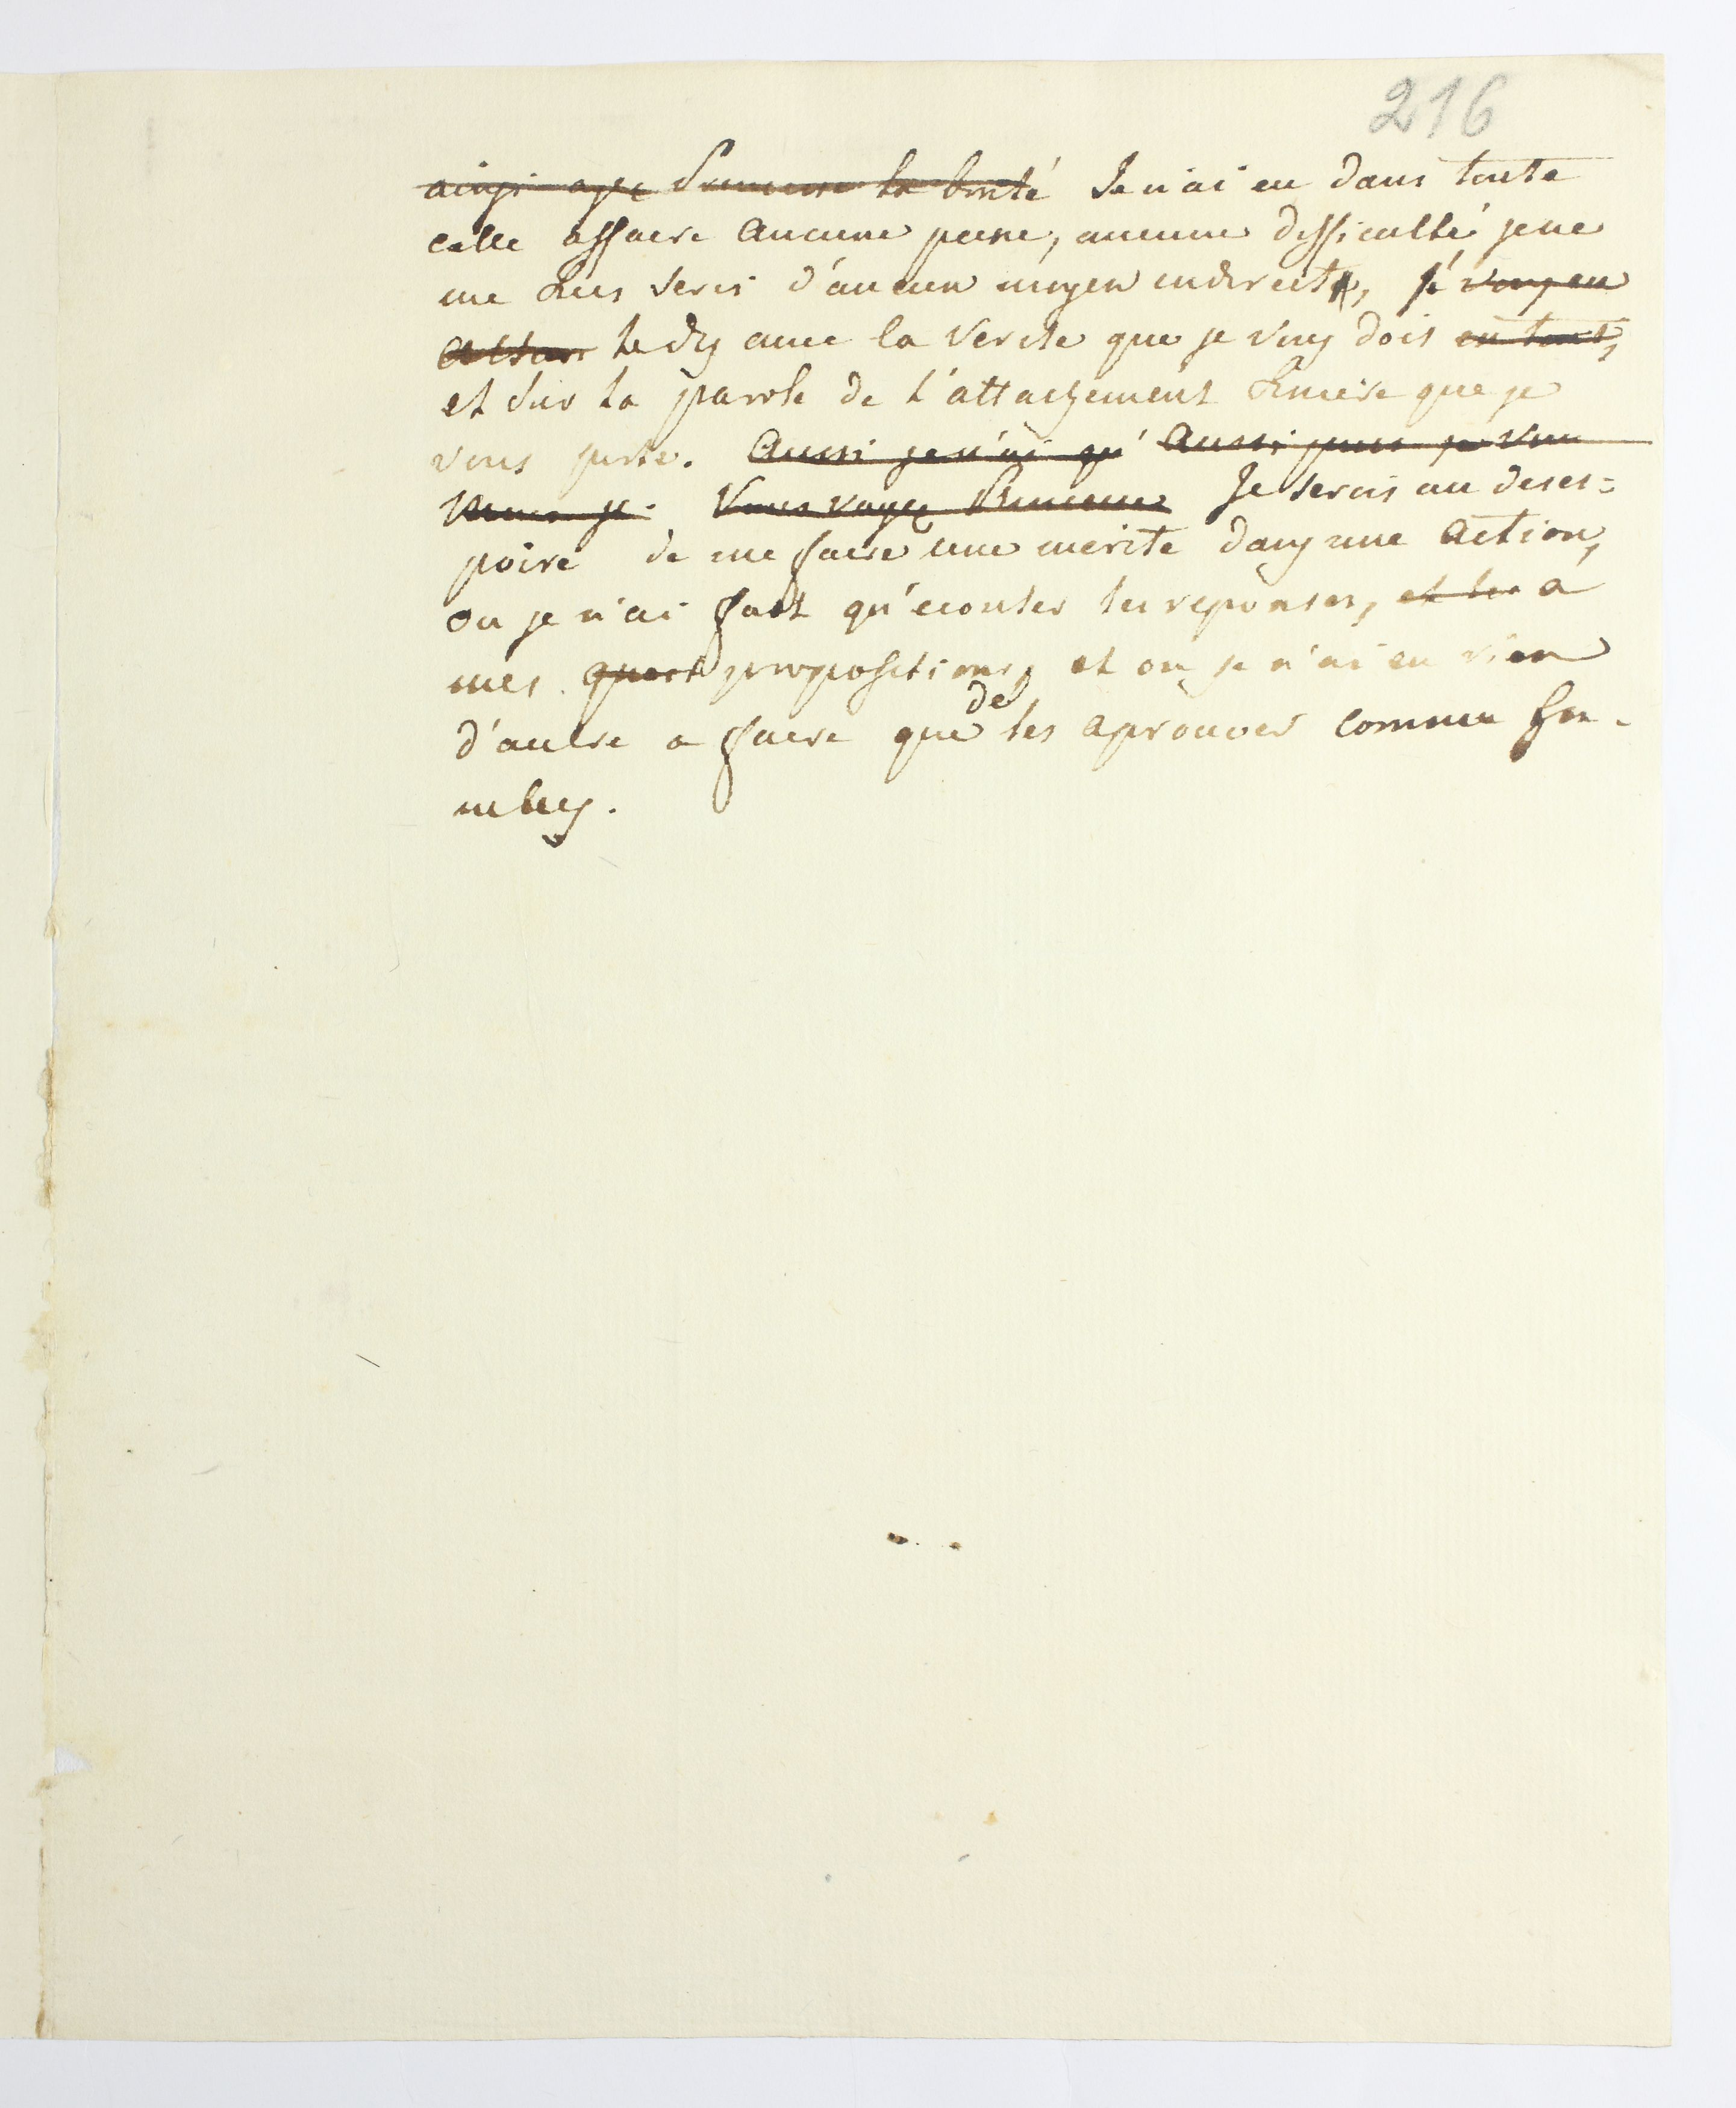 216
ainsi ayez Princesse la bonté Je n'ai eu dans toute
cette affaire aucune peine, aucune difficulté je ne
me suis servi d'aucun moyen indirect, je vous en
le dis avec la verité que je vous dois en tout,
et sur la parole de l'attachement sincere que je
vous porte. Aussi je n'ai qu' Aussi puis je vous
je. Vous voyez Princesse Je serois au deses=
poire de me faire une merite dans une action,
ou je n'ai fait qu'ecouter les reponses, et les a
mes propositions, et ou je n'ai eu rien
d'autre a faire que de les aprouver comme fon-